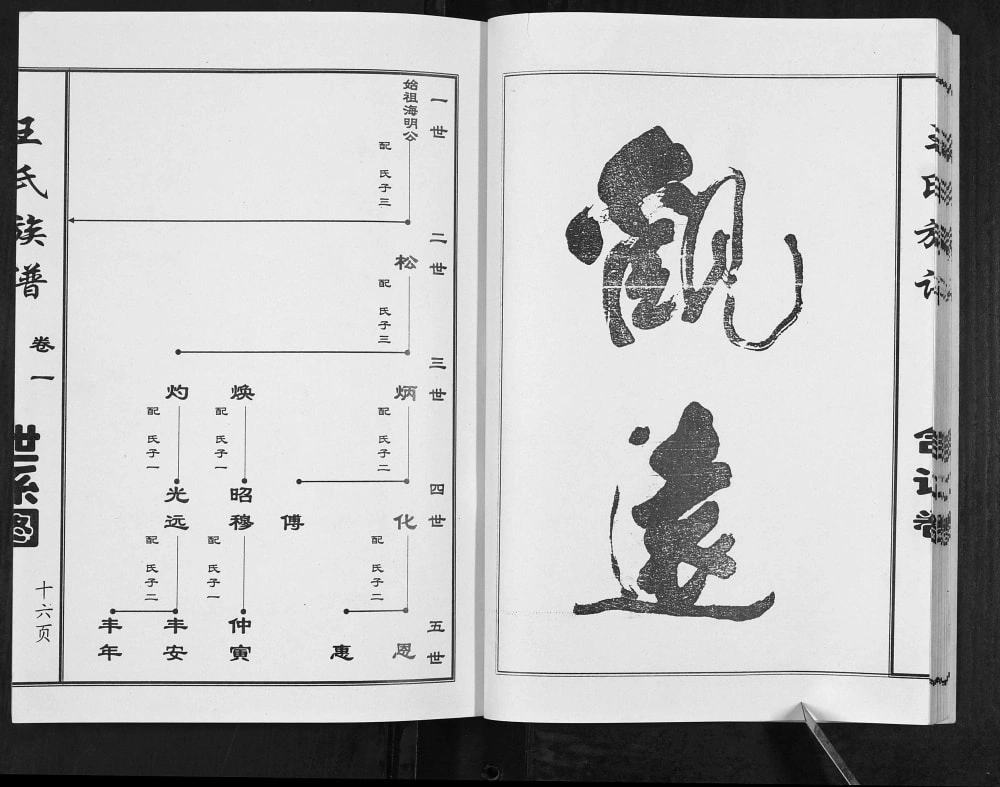 观
远
一世
始祖海明公
配 氏子三
二世
松
配 氏子三
三世
炳
焕
灼
配 氏子二
配 氏子一
配 氏子一
四世
化
傅
昭穆
光远
配 氏子二
配 氏子一
配 氏子二
五世
恩
惠
仲寅
丰安
丰年
王氏族谱
卷一
世系图
十六页